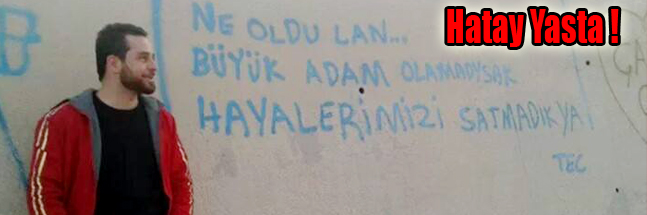 Hatay Yasta !
NE OLDU LAN...
BÜYÜK ADAM OLAMADYSAK
HAYALERİMİZİ SATMADIK YA!
TEC